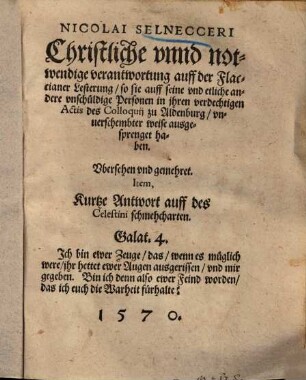 NICOLAI SELNECCERI
Christliche vnnd not-
wendige verantwortung auff der Flac-
cianer Lesterung / so sie auff seine vnd etliche an-
dere vnschüldige Personen in ihren verdechtigen
Actis des Colloquij zu Aldenburg / vn-
uerschembter weise ausge-
sprenget ha-
ben.
Vbersehen vnd gemehret.
Item,
Kurtze Antwort auff des
Celestini schmehcharten.
Galat. 4.
Ich bin ewer Zeuge / das / wenn es müglich
were / ihr hettet ewer Augen ausgerissen / vnd mir
gegeben. Bin ich denn also ewer Feind worden /
das ich euch die Warheit fürhalte?
1570.